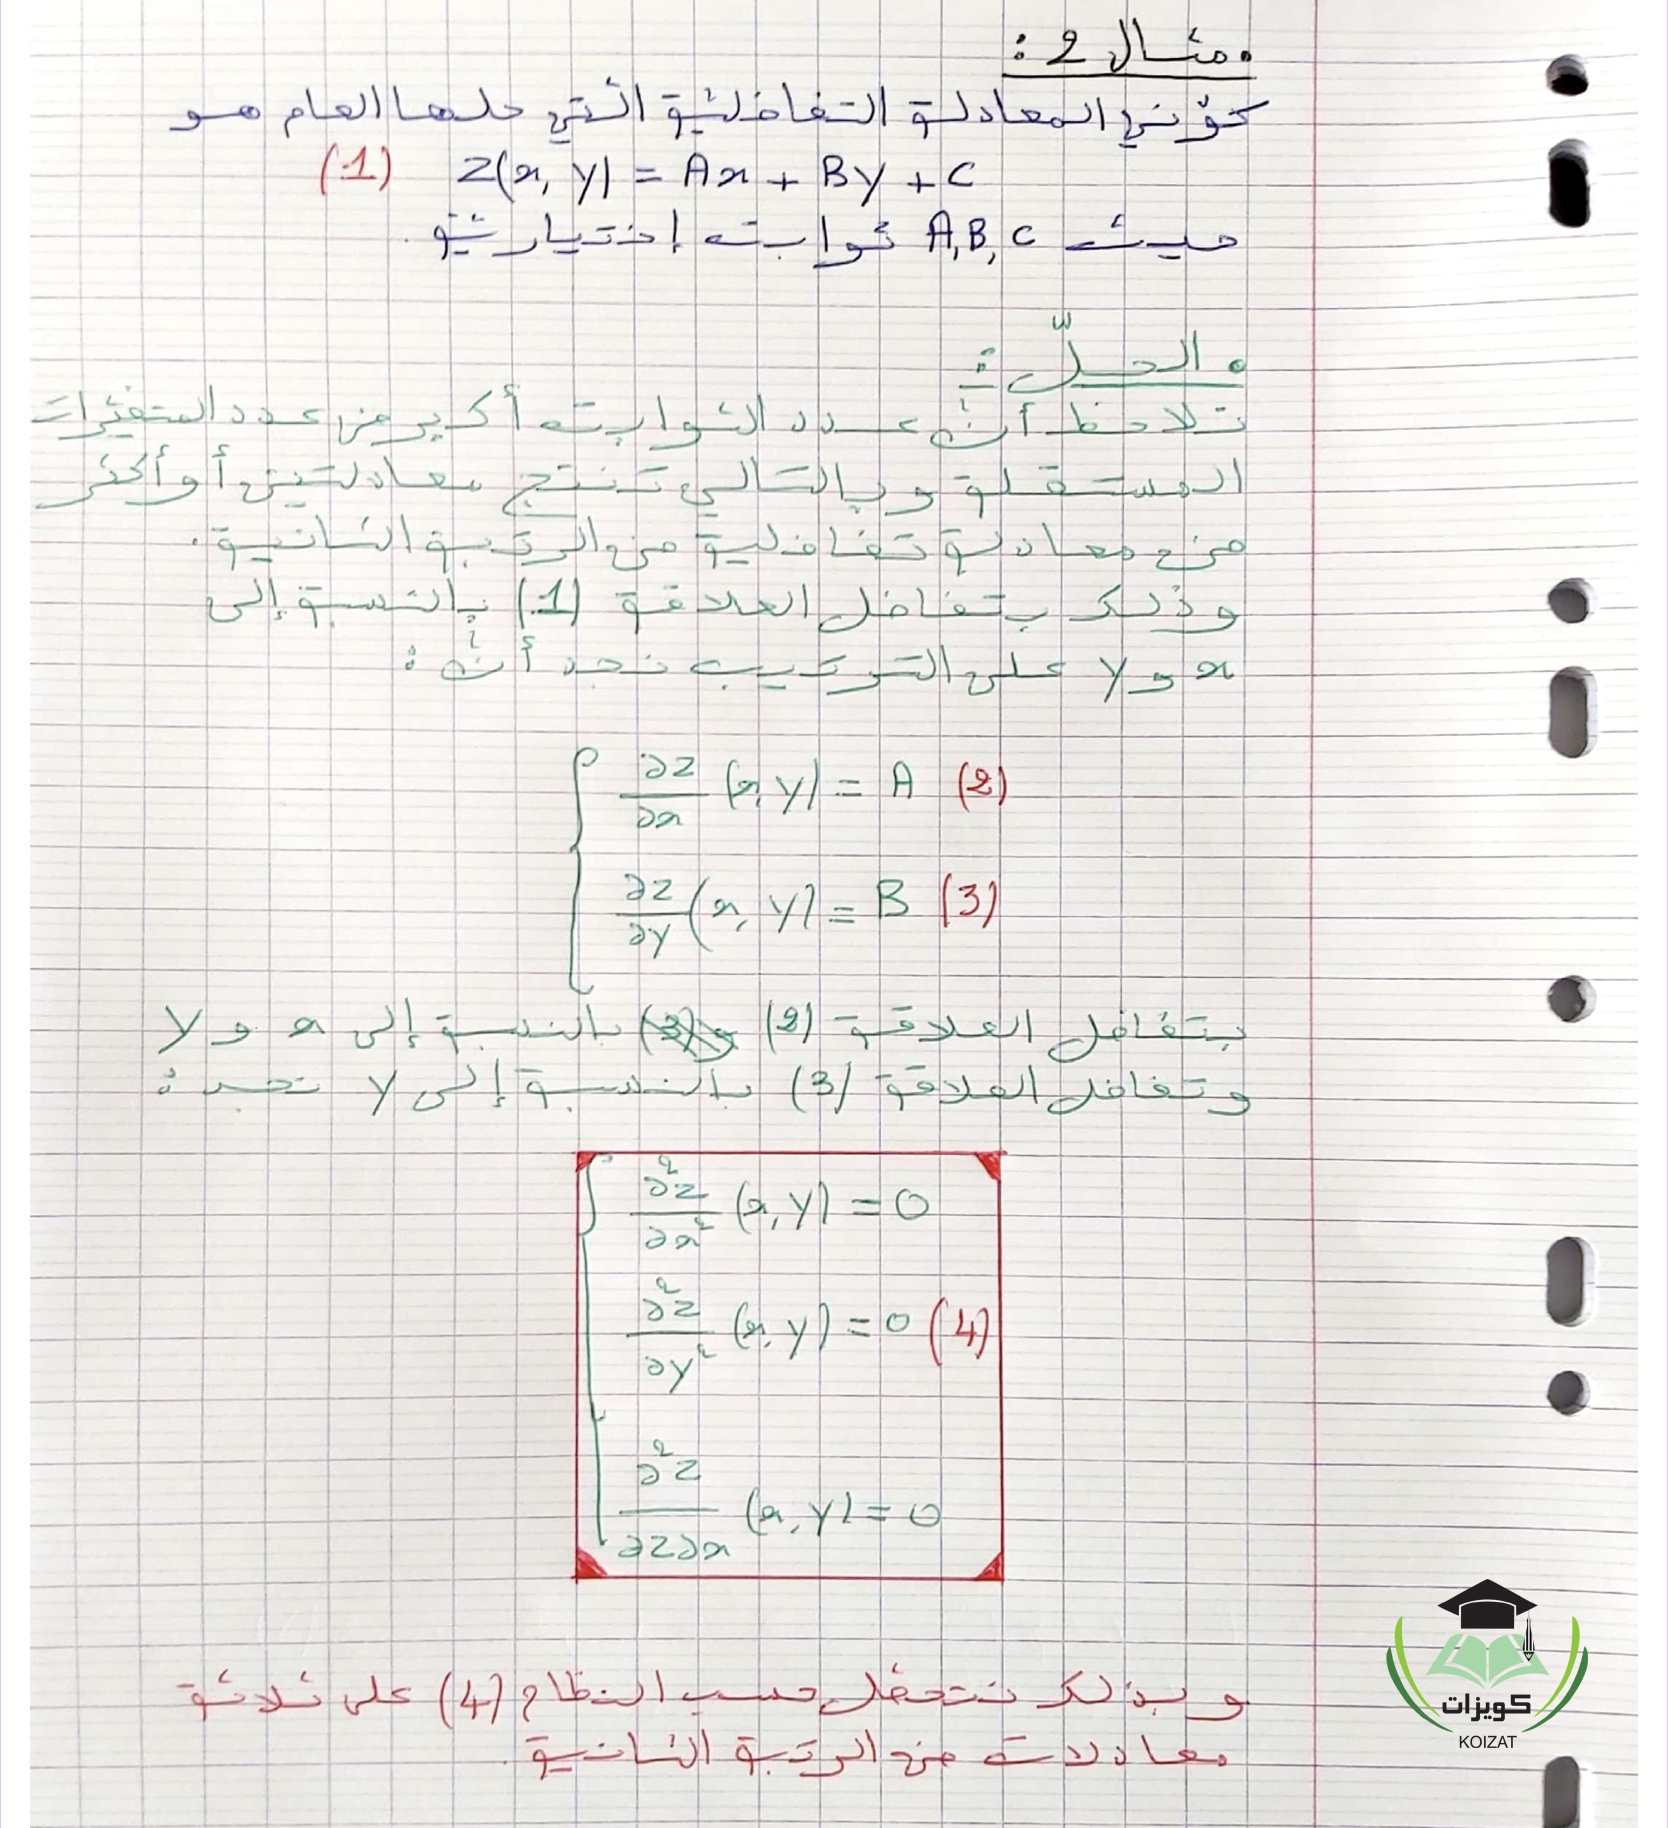 مثال 2 :
كوّني المعادلة التفاضلية التي حلها العام هو
Z(x, y) = Ax + By + C (1)
حيث A, B, C ثوابت إختيارية.
الحلّ :
نلاحظ أنّ عدد الثوابت أكبر من عدد المتغيرات
المستقلة وبالتالي تنتج معادلتين أو أكثر
من معادلة تفاضلية من الرتبة الثانية.
وذلك بتفاضل العلاقة (1) بالنسبة إلى
x و y على الترتيب نجد أنّ :
∂Z/∂x (x, y) = A (2)
∂Z/∂y (x, y) = B (3)
بتفاضل العلاقة (2) و(3) بالنسبة إلى x و y
وتفاضل العلاقة (3) بالنسبة إلى y نجد :
∂²Z/∂x² (x, y) = 0
∂²Z/∂y² (x, y) = 0 (4)
∂²Z/∂Z∂x (x, y) = 0
وبذلك نتحصّل حسب النظام (4) على ثلاثة
معادلات من الرتبة الثانية.
كويزات
KOIZAT